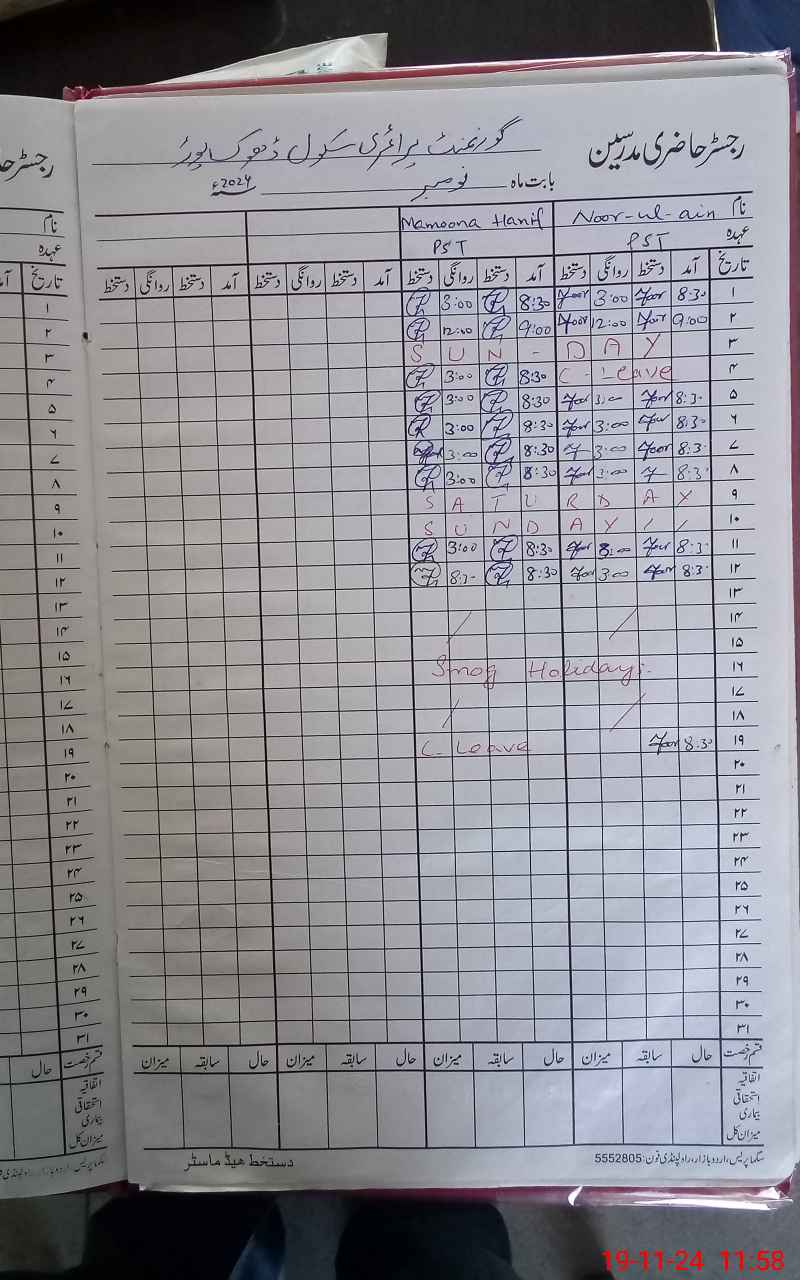 رجسٹر حاضری مدرسین گورنمنٹ پرائمری سکول ڈھوک
بابت ماہ نومبر 2024ء
نام Noor-ul-ain Mamoona Hanif
عہدہ PST PST
تاریخ آمد دستخط روانگی دستخط آمد دستخط روانگی دستخط آمد دستخط روانگی دستخط آمد دستخط روانگی دستخط
۱ 8:30 Noor 3:00 Noor 8:30 3:00
۲ 9:00 Noor 12:00 Noor 9:00 12:00
۳ SUN - DAY
۴ C - Leave 8:30 3:00
۵ 8:3- Noor 3:00 Noor 8:30 3:00
۶ 8:3- Noor 3:00 Noor 8:30 3:00
۷ 8:3- Noor 3:00 8:30 3:00
۸ 8:3- 3:00 Noor 8:30 3:00
۹ SATURDAY
۱۰ SUNDAY / /
۱۱ 8:3- Noor 3:00 Noor 8:30 3:00
۱۲ 8:3- Noor 3:00 Noor 8:30 8:3-
۱۳
۱۴
۱۵
۱۶ Smog Holidays.
۱۷
۱۸
۱۹ 8:30 Noor C. Leave
۲۰
۲۱
۲۲
۲۳
۲۴
۲۵
۲۶
۲۷
۲۸
۲۹
۳۰
۳۱
قسم رخصت حال سابقہ میزان حال سابقہ میزان حال سابقہ میزان حال سابقہ میزان
اتفاقیہ
استحقاقی
بیماری
میزان کل
دستخط ہیڈ ماسٹر
سگما پریس، اردو بازار، راولپنڈی فون: 5552805
19-11-24 11:58